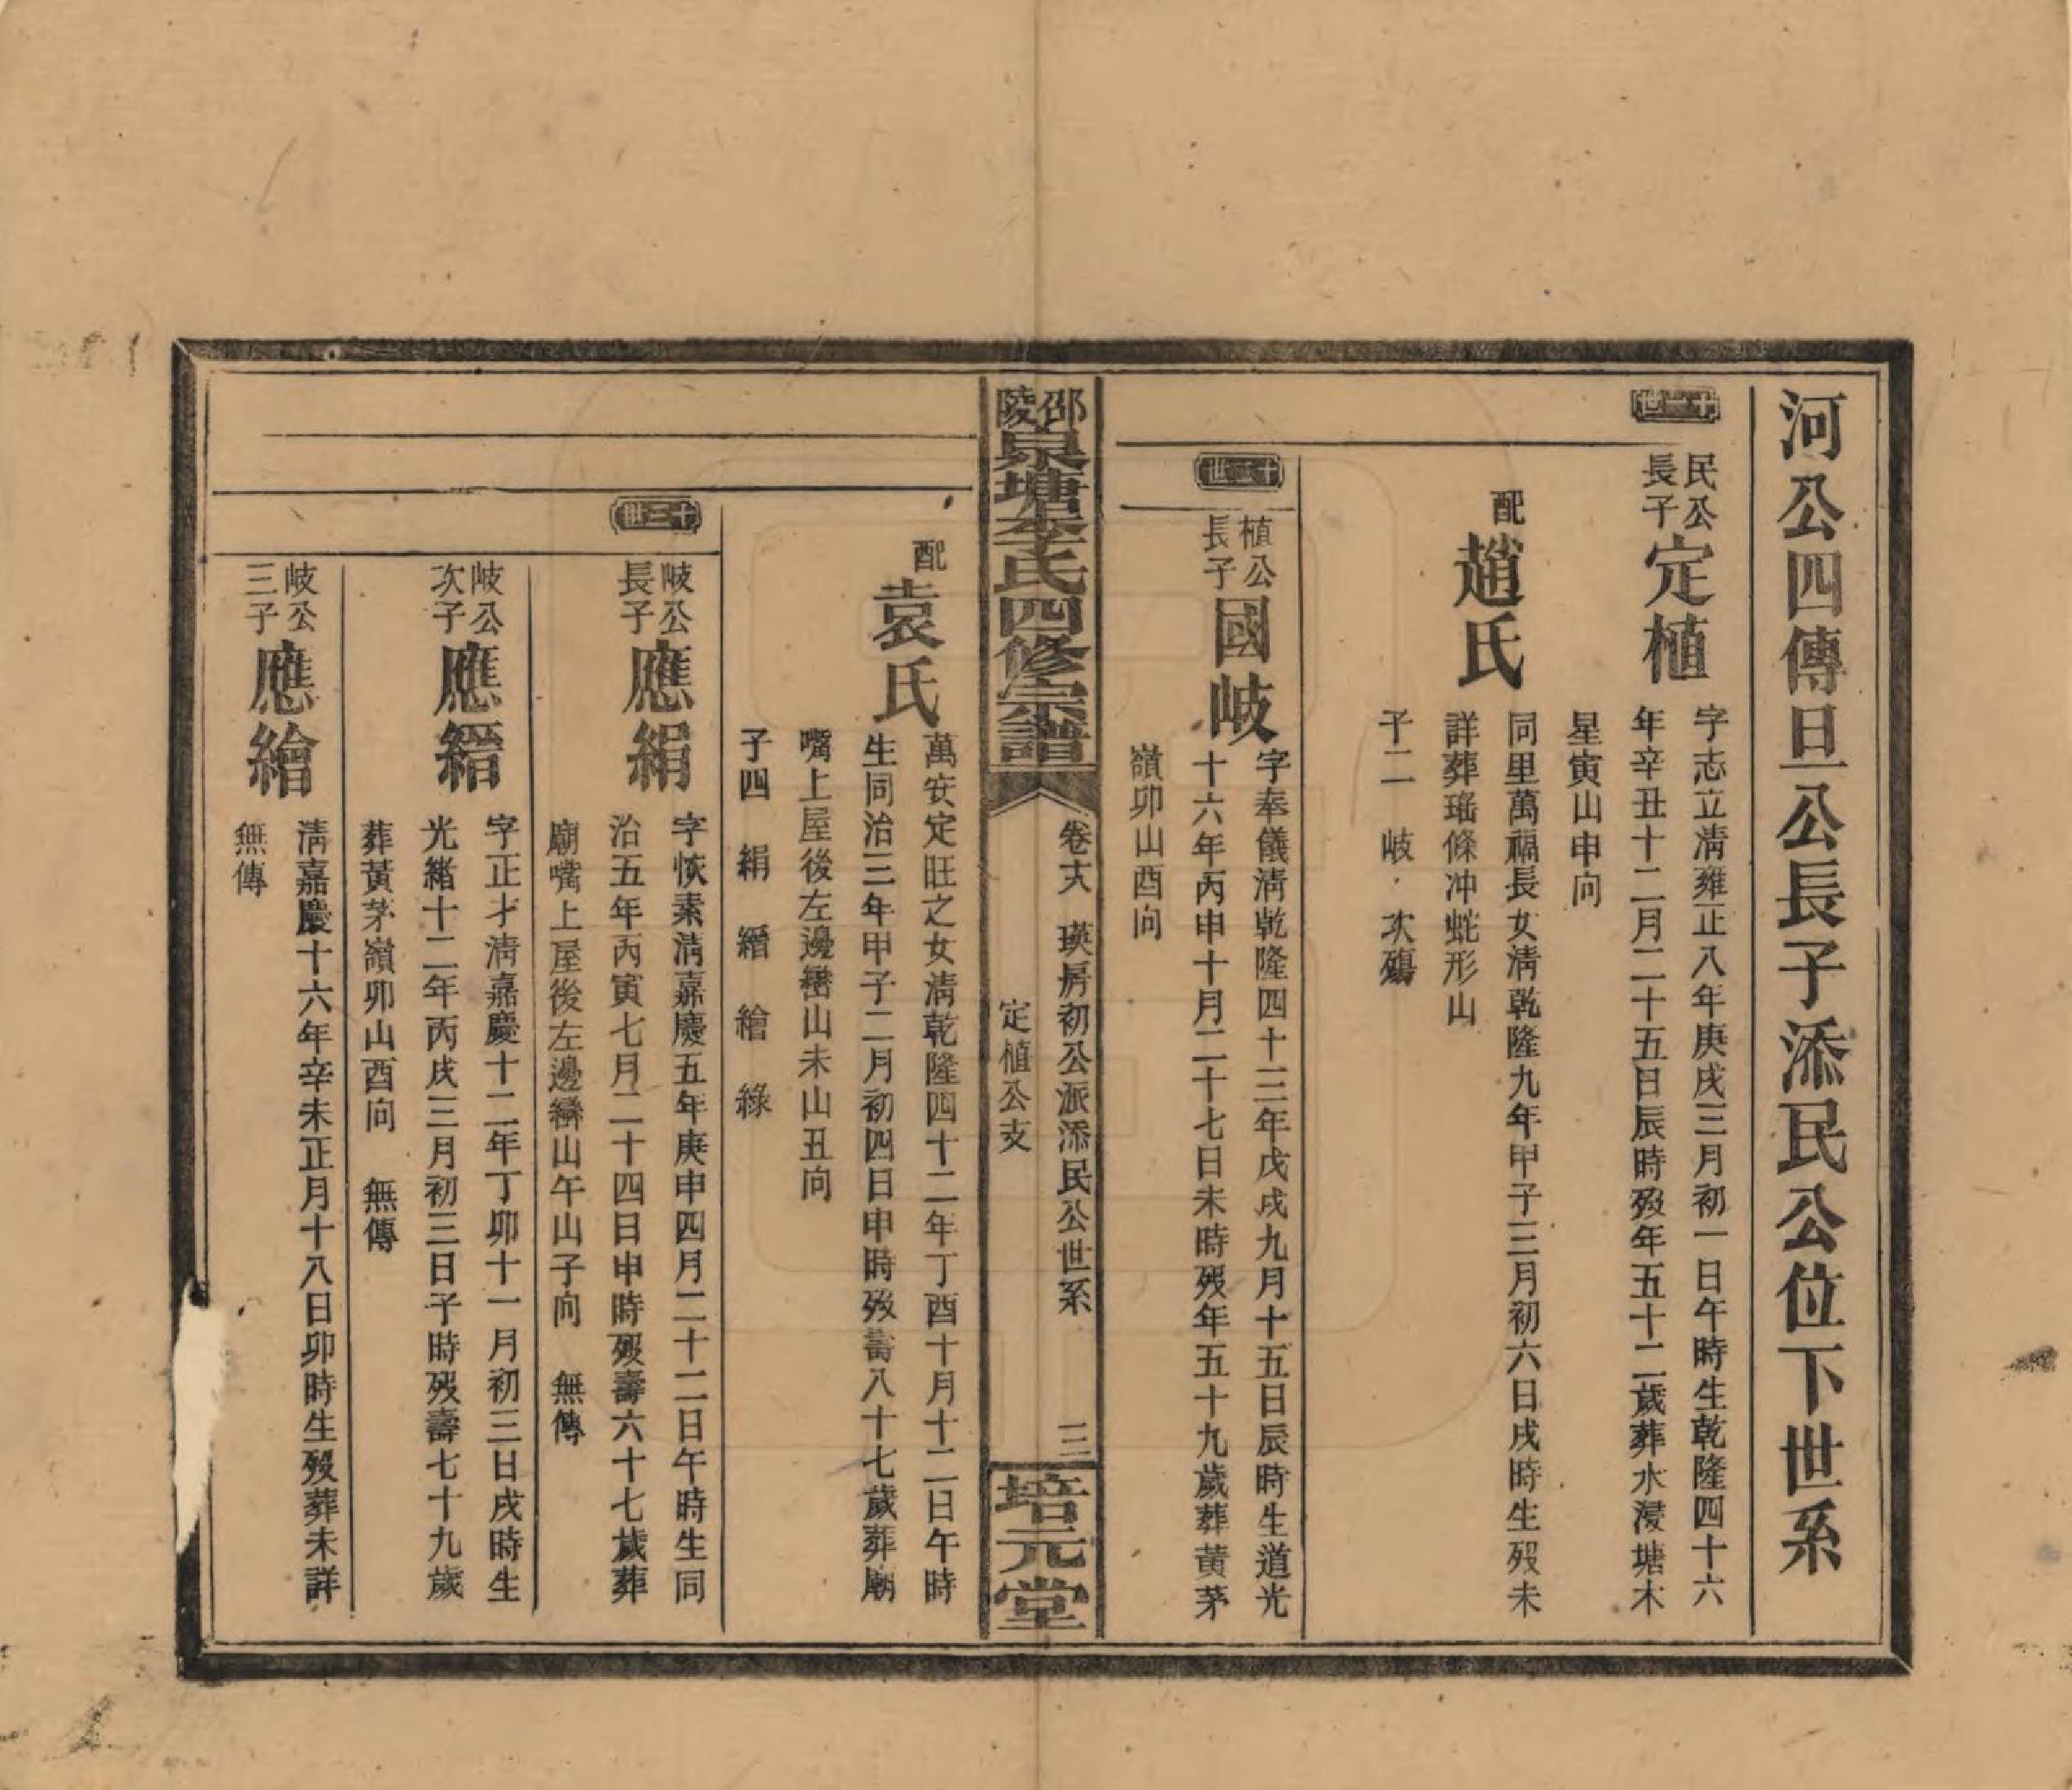 河公四傳旦公長子添民公位下世系
十一世
民公
長子
定植
字志立淸雍正八年庚戌三月初一日午時生乾隆四十六
年辛丑十二月二十五日辰時歿年五十二歲葬水浸塘木
星寅山申向
配
趙氏
同里萬福長女淸乾隆九年甲子三月初六日戌時生歿未
詳葬瑤條冲蛇形山
子二　岐　次殤
十二世
植公
長子
國岐
字奉儀淸乾隆四十三年戊戌九月十五日辰時生道光
十六年丙申十月二十七日未時歿年五十九歲葬黃茅
嶺卯山酉向
邵陵泉塘李氏四修宗譜
卷十六　瑛房初公派添民公世系　三
定植公支
培元堂
配
袁氏
萬安定旺之女淸乾隆四十二年丁酉十月十二日午時
生同治三年甲子二月初四日申時歿壽八十七歲葬廟
嘴上屋後左邊巒山未山丑向
子四　絹　縉　繪　綠
十三世
岐公
長子
應絹
字恢素淸嘉慶五年庚申四月二十二日午時生同
治五年丙寅七月二十四日申時歿壽六十七歲葬
廟嘴上屋後左邊巒山午山子向　無傳
岐公
次子
應縉
字正才淸嘉慶十二年丁卯十一月初三日戌時生
光緒十二年丙戌三月初三日子時歿壽七十九歲
葬黃茅嶺卯山酉向　無傳
岐公
三子
應繪
淸嘉慶十六年辛未正月十八日卯時生歿葬未詳
無傳